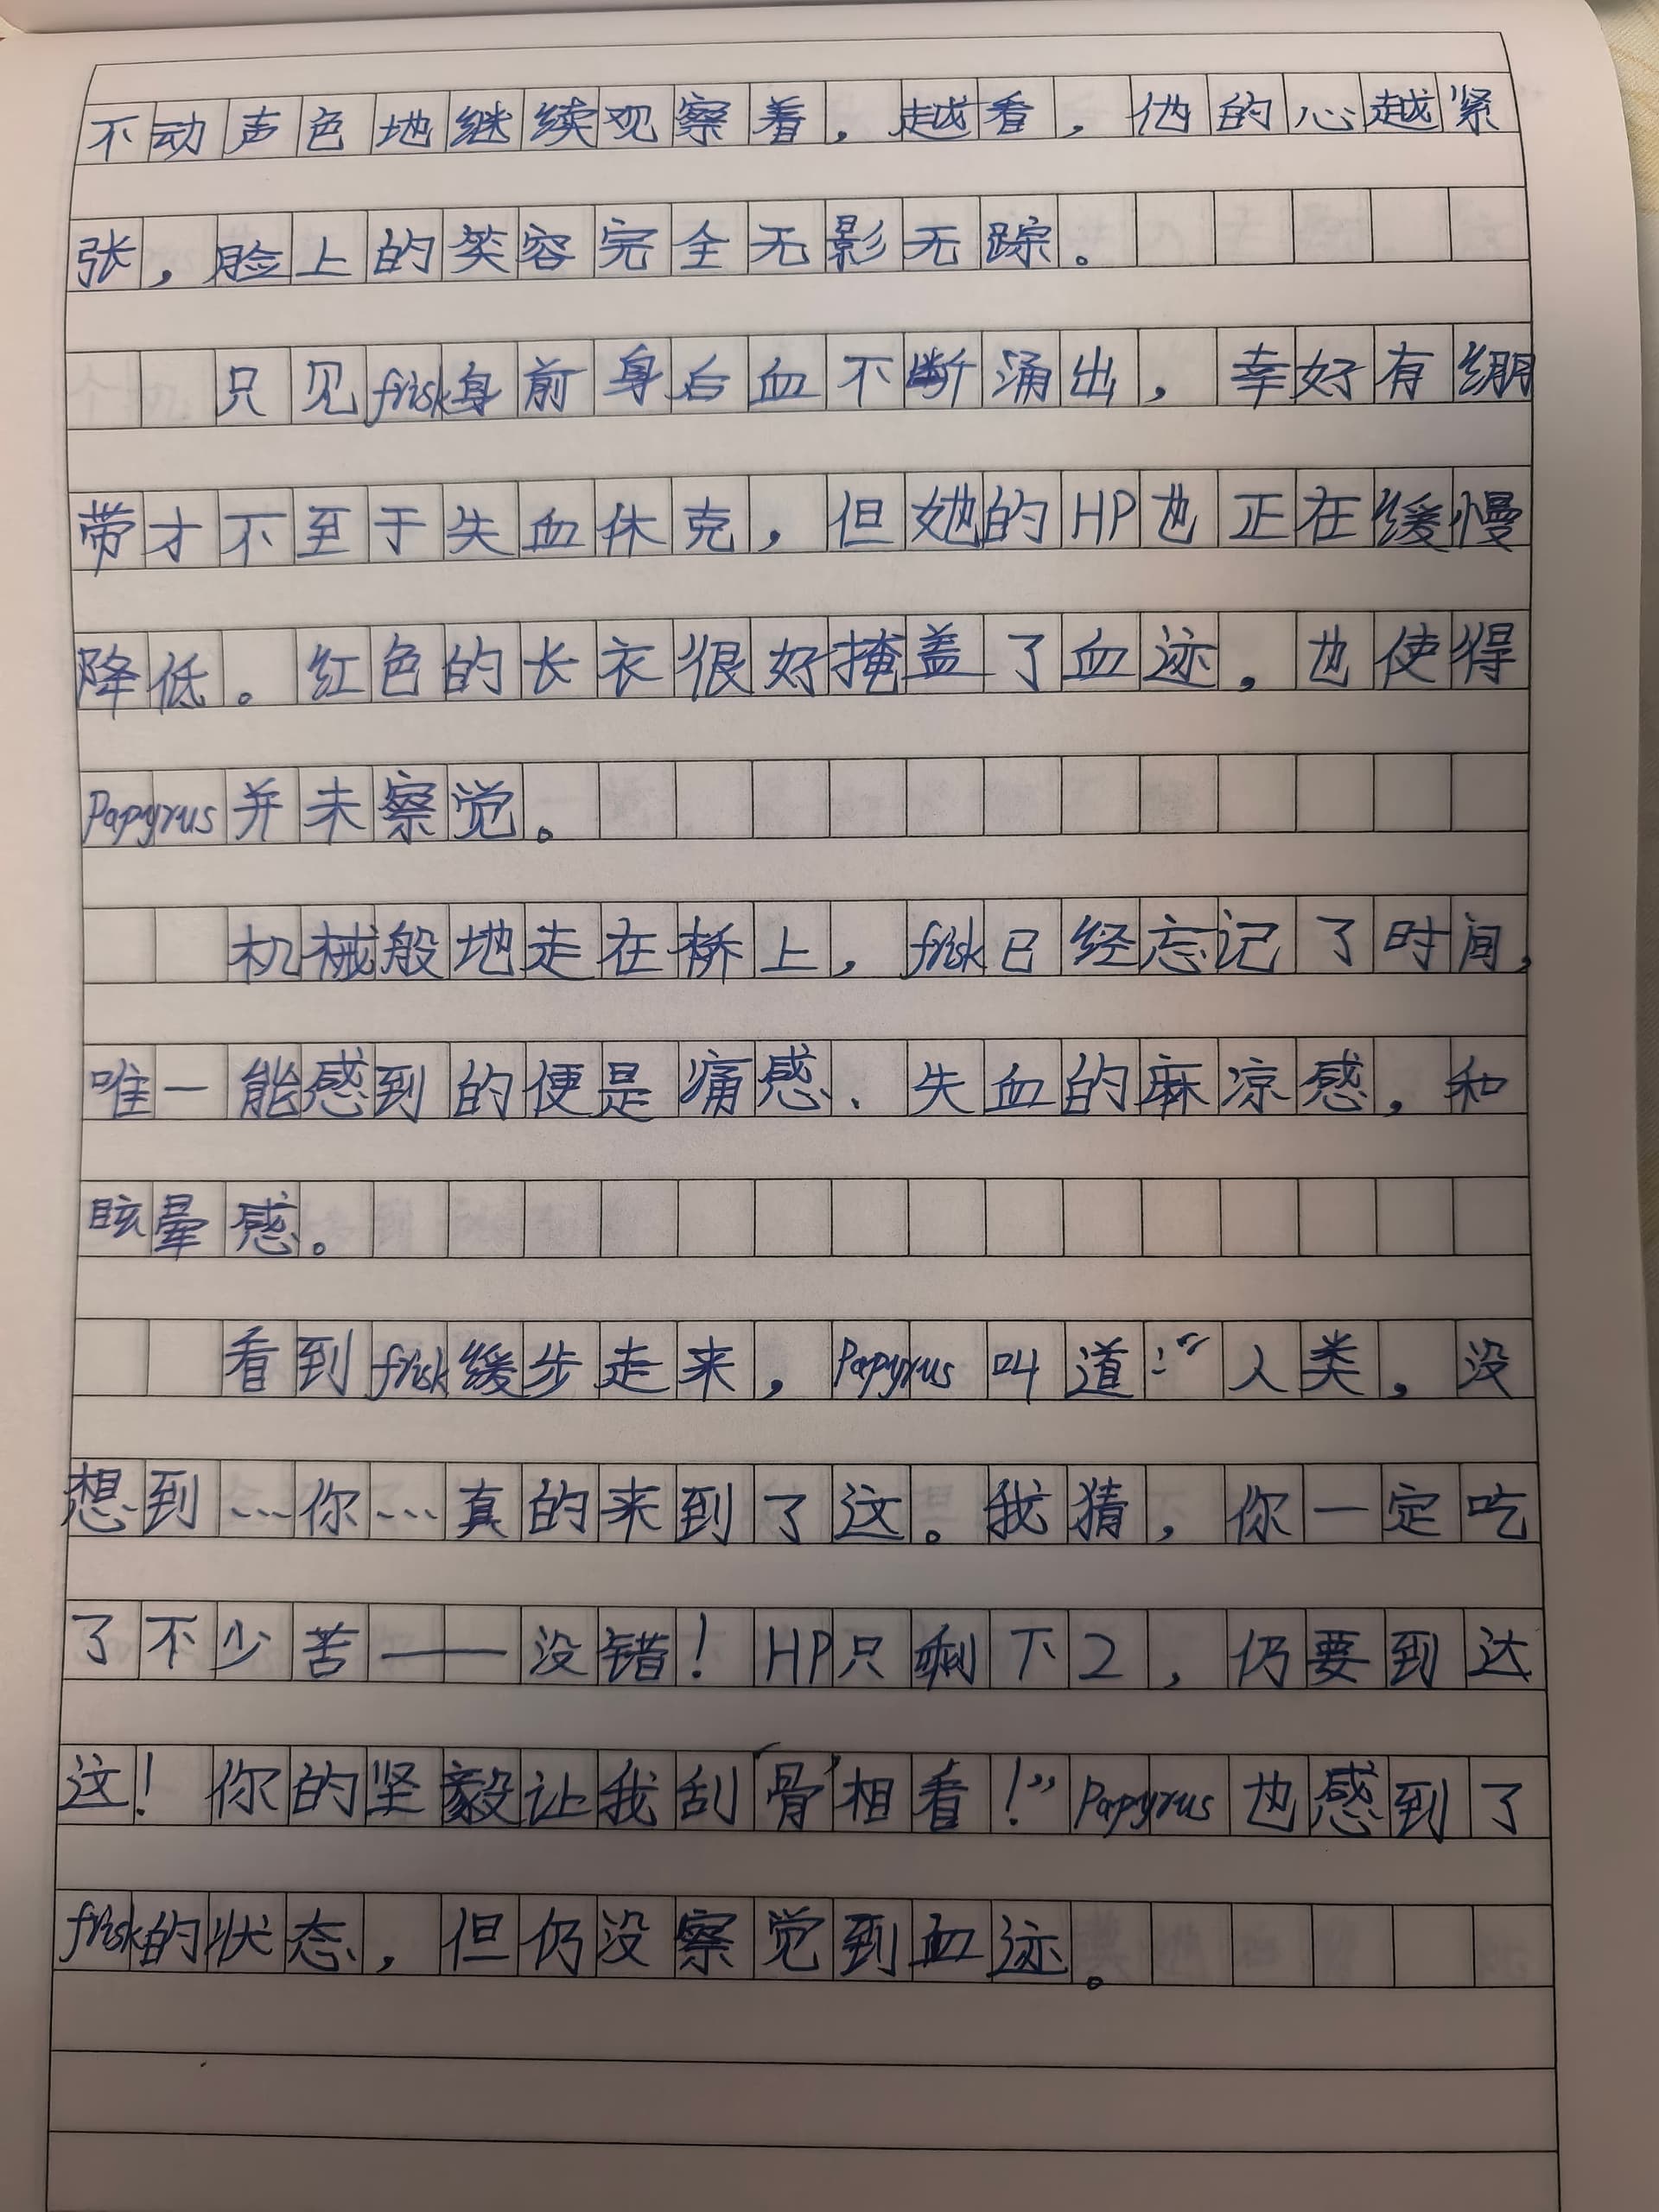 不动声色地继续观察着，越看，他的心越紧
张，脸上的笑容完全无影无踪。
只见frisk身前身后血不断涌出，幸好有绷
带才不至于失血休克，但她的HP也正在缓慢
降低。红色的长衣很好掩盖了血迹，也使得
Papyrus并未察觉。
机械般地走在桥上，frisk已经忘记了时间，
唯一能感到的便是痛感、失血的麻凉感，和
眩晕感。
看到frisk缓步走来，Papyrus叫道：“人类，没
想到…你…真的来到了这。我猜，你一定吃
了不少苦——没错！HP只剩下2，仍要到达
这！你的坚毅让我刮‘骨’相看！”Papyrus也感到了
frisk的状态，但仍没察觉到血迹。